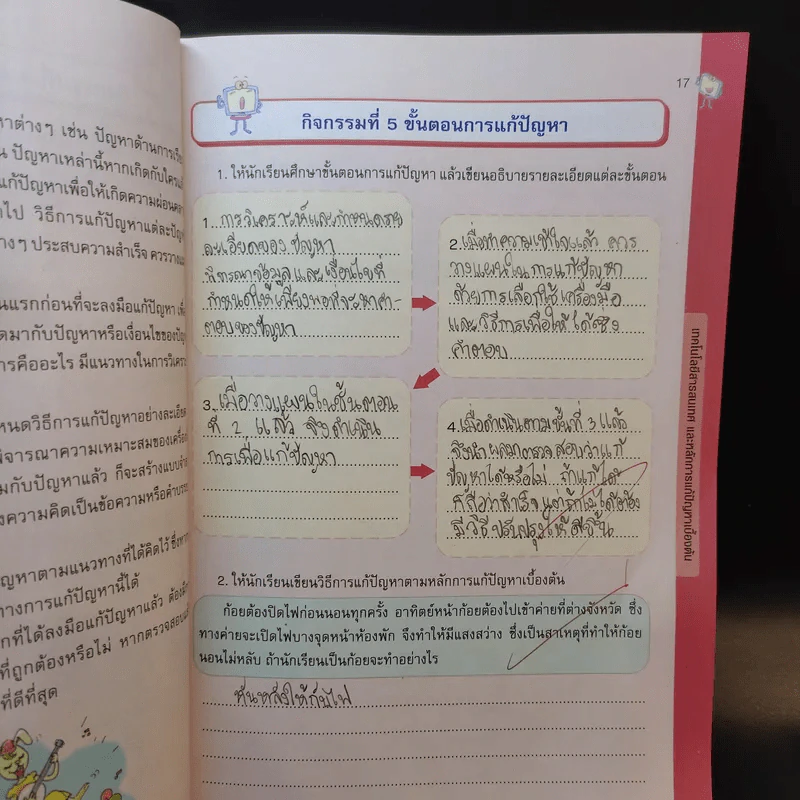 หาต่างๆ เช่น ปัญหาด้านการเรีย
น ปัญหาเหล่านี้หากเกิดกับใครแล้
แก้ปัญหาเพื่อให้เกิดความผ่อนคลา
ไป วิธีการแก้ปัญหาแต่ละปัญห
างๆ ประสบความสำเร็จ ควรวางแผ
นแรกก่อนที่จะลงมือแก้ปัญหา เพื่
ดมากับปัญหาหรือเงื่อนไขของปัญ
การคืออะไร มีแนวทางในการวิเครา
หนดวิธีการแก้ปัญหาอย่างละเอียด
พิจารณาความเหมาะสมของเครื่อง
มกับปัญหาแล้ว ก็จะสร้างแบบจำ
งความคิดเป็นข้อความหรือคำบรร
ญหาตามแนวทางที่ได้คิดไว้ ซึ่งหา
ทางการแก้ปัญหานี้ได้
กที่ได้ลงมือแก้ปัญหาแล้ว ต้องมี
ที่ถูกต้องหรือไม่ หากตรวจสอบแล้
ที่ดีที่สุด
17
กิจกรรมที่ 5 ขั้นตอนการแก้ปัญหา
1. ให้นักเรียนศึกษาขั้นตอนการแก้ปัญหา แล้วเขียนอธิบายรายละเอียดแต่ละขั้นตอน
1. การวิเคราะห์และกำหนดราย
ละเอียดของปัญหา
พิจารณาข้อมูลและเงื่อนไขที่
กำหนดให้เพียงพอที่จะหาคำ-
ตอบของปัญหา
2. เมื่อทำความเข้าใจแล้ว ควร
วางแผนในการแก้ปัญหา
ด้วยการเลือกใช้เครื่องมือ
และวิธีการเพื่อให้ได้ซึ่ง
คำตอบ
3. เมื่อวางแผนในขั้นตอน
ที่ 2 แล้ว จึงดำเนิน
การเพื่อแก้ปัญหา
4. เมื่อดำเนินตามขั้นที่ 3 แล้ว
จึงนำผลมาตรวจสอบว่าแก้
ปัญหาได้หรือไม่ ถ้าแก้ได้
ก็ถือว่าสำเร็จ แต่ถ้าไม่ได้ต้อง
มีวิธีปรับปรุงให้ดีขึ้น
เทคโนโลยีสารสนเทศ และหลักการแก้ปัญหาเบื้องต้น
2. ให้นักเรียนเขียนวิธีการแก้ปัญหาตามหลักการแก้ปัญหาเบื้องต้น
ก้อยต้องปิดไฟก่อนนอนทุกครั้ง อาทิตย์หน้าก้อยต้องไปเข้าค่ายที่ต่างจังหวัด ซึ่ง
ทางค่ายจะเปิดไฟบางจุดหน้าห้องพัก จึงทำให้มีแสงสว่าง ซึ่งเป็นสาเหตุที่ทำให้ก้อย
นอนไม่หลับ ถ้านักเรียนเป็นก้อยจะทำอย่างไร
หันหลังให้กับไฟ